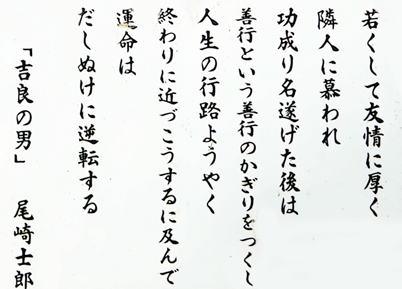 若くして友情に厚く
隣人に慕われ
功成り名遂げた後は
善行という善行のかぎりをつくし
人生の行路ようやく
終わりに近づこうするに及んで
運命は
だしぬけに逆転する
「吉良の男」　尾崎士郎